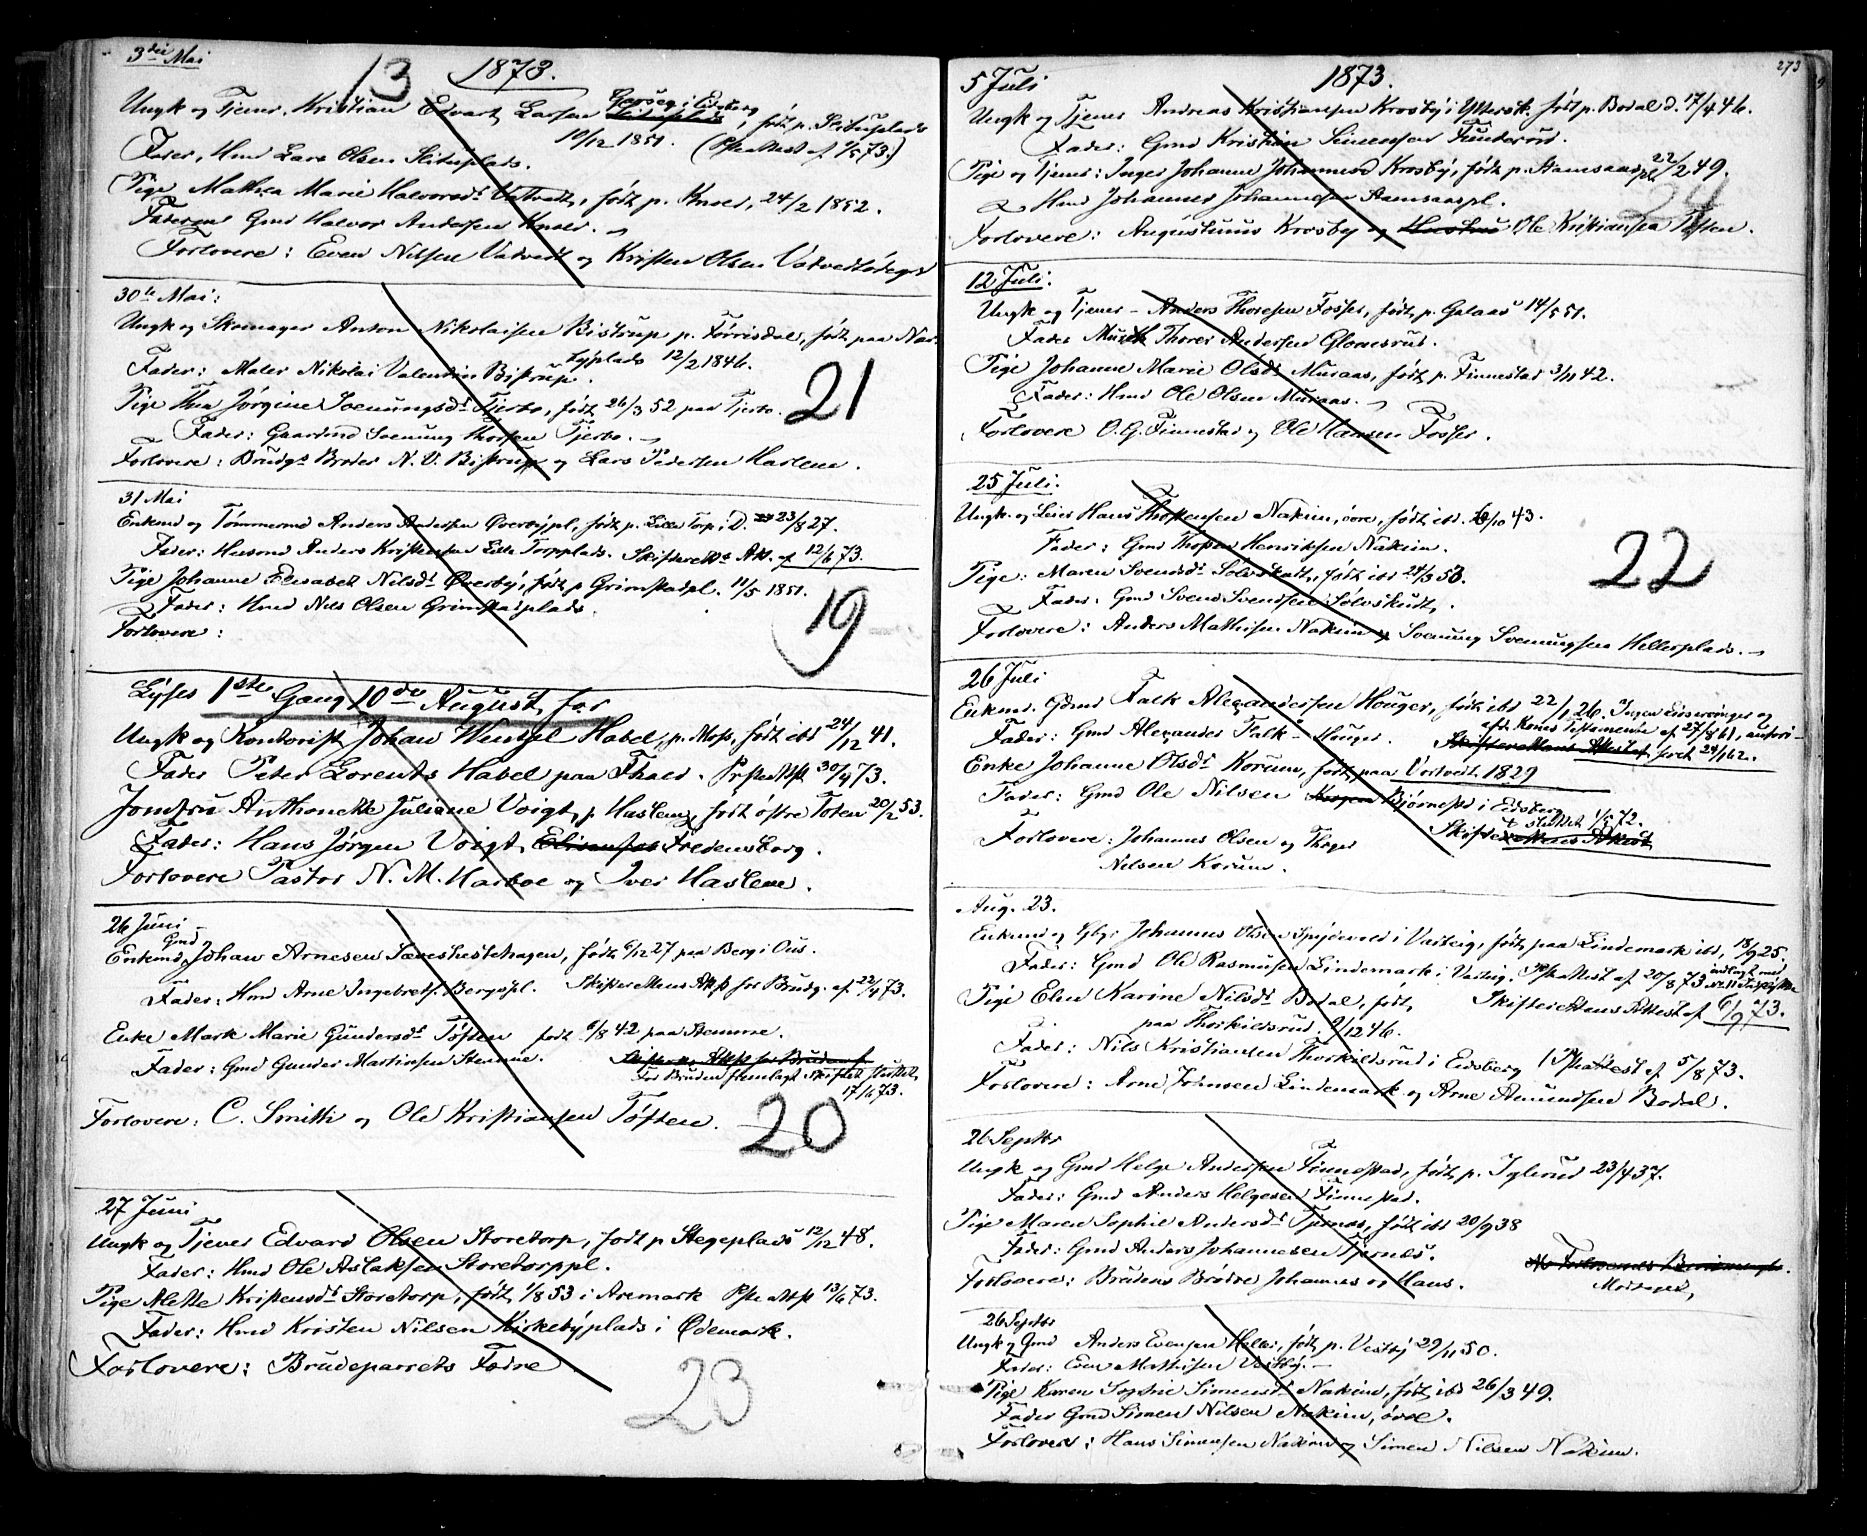 3die Mai
13 1873.
Ungk og Tjener, Kristian Edvart Larsen i Eidsberg, født p.
10/12 1851. (Præsteattest af 1/5 73.)
Fader, Hmd Lars Olsen
Pige Mathea Marie Halvorsdt Vatvedt, født p. Knoer, 24/2 1852.
Faderen Gmd Halvor Andersen
Forlovere: Even Nilsen Vatvedt og Kristen Olsen
30te Mai:
Ungk og Skomager Anton Nikolaisen Bistrup p. Tørrisdal, født paa
12/2 1846.
Fader: Maler Nikolai Valentin Bistrup.
21
Pige Thea Jørgine Svenungsdt Tjerbo, født 26/3 52 paa Tjerbo.
Fader: Gaardmd Svenung Thorsen Tjerbo.
Forlovere: Brudgs Broder N. V. Bistrup og Lars Pedersen Haslem.
31 Mai
Enkemd og Tømmermd Anders Andersen Øverbypl, født p. Lille Torp i Ø. 23/8 27.
Fader: Husmd Anders Kristensen Lille Torpplads. Skifterettes Att. af 12/6 73.
Pige Johanne Elisabeth Nilsdt Øverby, født p Grimstadpl. 11/5 1851.
Fader: Hmd Nils Olsen Grimstadplads.
19
Forlovere:
Lyses 1ste Gang 10de August for
Ungk og Kontorist Johan Wentzel Habel, p. Moss, født ibd 24/12 41.
Fader Peter Lorents Habel paa Fhald. Præsteattst 30/4 73.
Jomfru Anthonette Juliane Voigt, p Haslem, født østre Toten 20/2 53.
Fader: Hans Jørgen Voigt, Fredensborg.
Forlovere Pastor N. M. Harboe og Iver Haslem.
26 Juni
Gmd
Enkemd Johan Arnesen Saueshestehagen, født 6/12 27 paa Berg i Ous.
Fader: Hmd Arne Ingebretsen Bergspl. Skifterettens Attst for Brudg. af 22/4 73.
Enke Mark Marie Gundersdt Tøften født 6/8 42 paa Stemme.
Fader: Gmd Gunder Martinsen Stemme.
For Bruden fremlagt Skiftet sluttet
17/6 73.
Forlovere: C. Smith og Ole Kristiansen Tøften.
20
27 Juni
Ungk og Tjener Edvard Olsen Storetorp, født p Stegeplads 12/12 48.
Fader: Hmd Ole Aslaksen Storetorppl.
Pige Mette Kristensdt Storetorp, født 1/8 53 i Aremark Præsteattst 13/6 73.
Fader: Hmd Kristen Nilsen Kirkebyplads i Ødemark.
Forlovere: Brudeparrets Fædre
23
273
5 Juli
1873.
Ungk og Tjener Andreas Kristiansen Krosby i Ytersk. født p. Bodal d. 17/4 46.
Fader: Gmd Kristian Simensen Funderud.
Pige og Tjener: Inger Johanne Johannesd Krosby, født p. 22/2 49.
Hmd Johannes Johannesen
24
Forlovere: Augustinus Krosby og Ole Kristiansen Tøften.
12 Juli.
Ungk og Tjener - Anders Thoresen Fosser, født p. Galaas 14/5 51.
Fader Thorer Andersen
Pige Johanne Marie Olsdt Muraas, født p. Finnestad 3/11 42.
Fader: Hmd Ole Olsen Muraas.
Forlovere O. G. Finnestad og Ole Hansen Fosser.
25 Juli.
Ungk. og Leier Hans Thostensen Nakim, øvre, født ibd. 6/10 43.
Fader: Gmd Thosten Henriksen Nakim.
22
Pige: Maren Svendsdt Sølvskudt, født ibd 24/3 50.
Fader. Gmd Svend Svendsen Sølvskudt.
Forlovere: Anders Mathisen Nakim og Svenung Svenungsen Hellesplads.
26 Juli
Enkmd. Gdmd Falk Alexandersen Houger, født ibd 22/1 26.
afd. Kones Testamente af 27/8 61,
Fader: Gmd Alexander Falk - Houger.
24/1 62.
Enke Johanne Olsdt Korum, født paa Vestvedt 1829
Fader: Gmd Ole Nilsen Bjørnestd i Eidsberg
Skifte sluttet 1/5 72.
Forlovere: Johannes Olsen og Thoger
Nilsen Korum.
Aug. 23.
Enkmd og Johannes Olsen i Varteig, født paa Lindemark ibd, 18/9 25.
Fader: Gmd Ole Rasmusen Lindemark i Varteig. Præsteattest af 20/8 73
Pige Elen Karine Nilsdt Bodal, født, Skifterettens Attest af 6/9 73.
paa Thorkildsrud. 9/12 46.
Fader: Nils Kristiansen Thorkildsrud i Eidsberg (Præsteattest af 5/8 73.
Forlovere: Arne Johnsen Lindemark og Arne Amundsen Bodal.
26 Septbr
Ungk og Gmd Helge Andersen Finnestad, født p. Iglerud 23/4 37.
Fader: Gmd Anders Helgesen Finnestad.
Pige Maren Sophie Andersdt Tjernes, født ibd 20/9 38
Fader: Gmd Anders Johannesen Tjernes.
Forlovere: Brudens Brødre Johannes og Hans.
Modtaget,
26 Septbr
Ungk og Gmd Anders Evensen Heller, født p. Vestby 29/11 50.
Fader: Even Mathisen Vestby.
Pige Karen Sophie Simensdt Nakim, født ibd 26/3 49.
Fader Gmd Simen Nilsen Nakim, øvre.
Forlovere: Hans Simensen Nakim og Simen Nilsen Nakim.